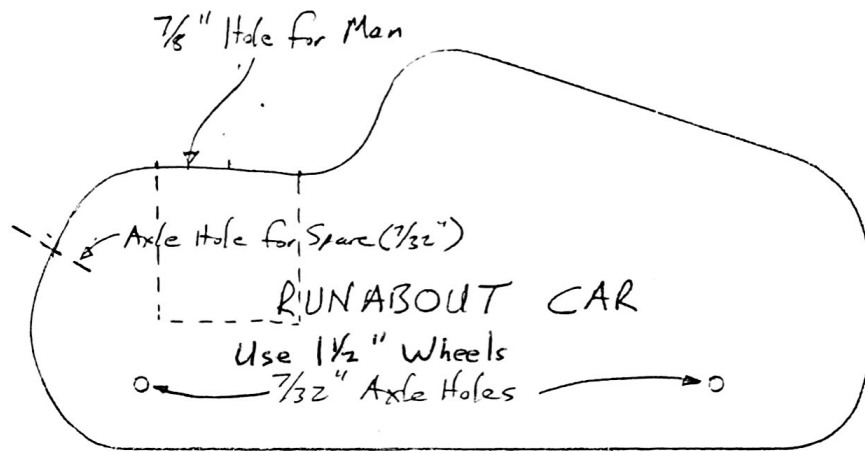 7/8" Hole for Man
Axle Hole for Spare (7/32")
RUNABOUT CAR
Use 1 1/2" Wheels
7/32" Axle Holes